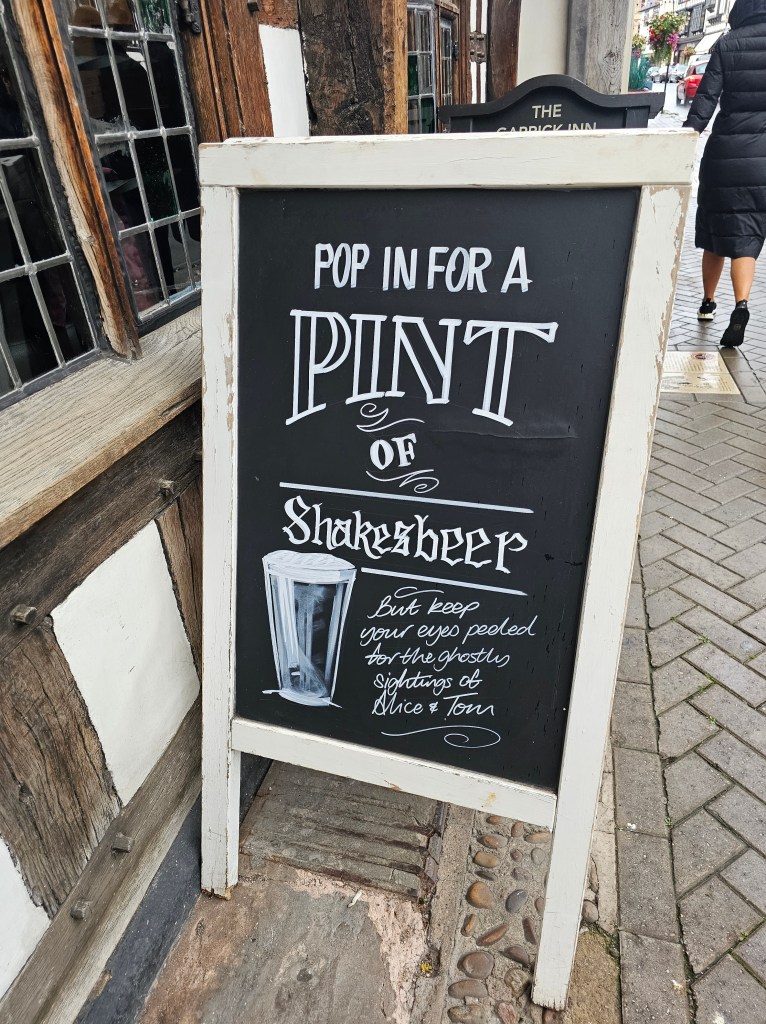 THE
GARRICK INN
POP IN FOR A
PINT
OF
Shakesbeer
But keep
your eyes peeled
for the ghostly
sightings of
Alice & Tom